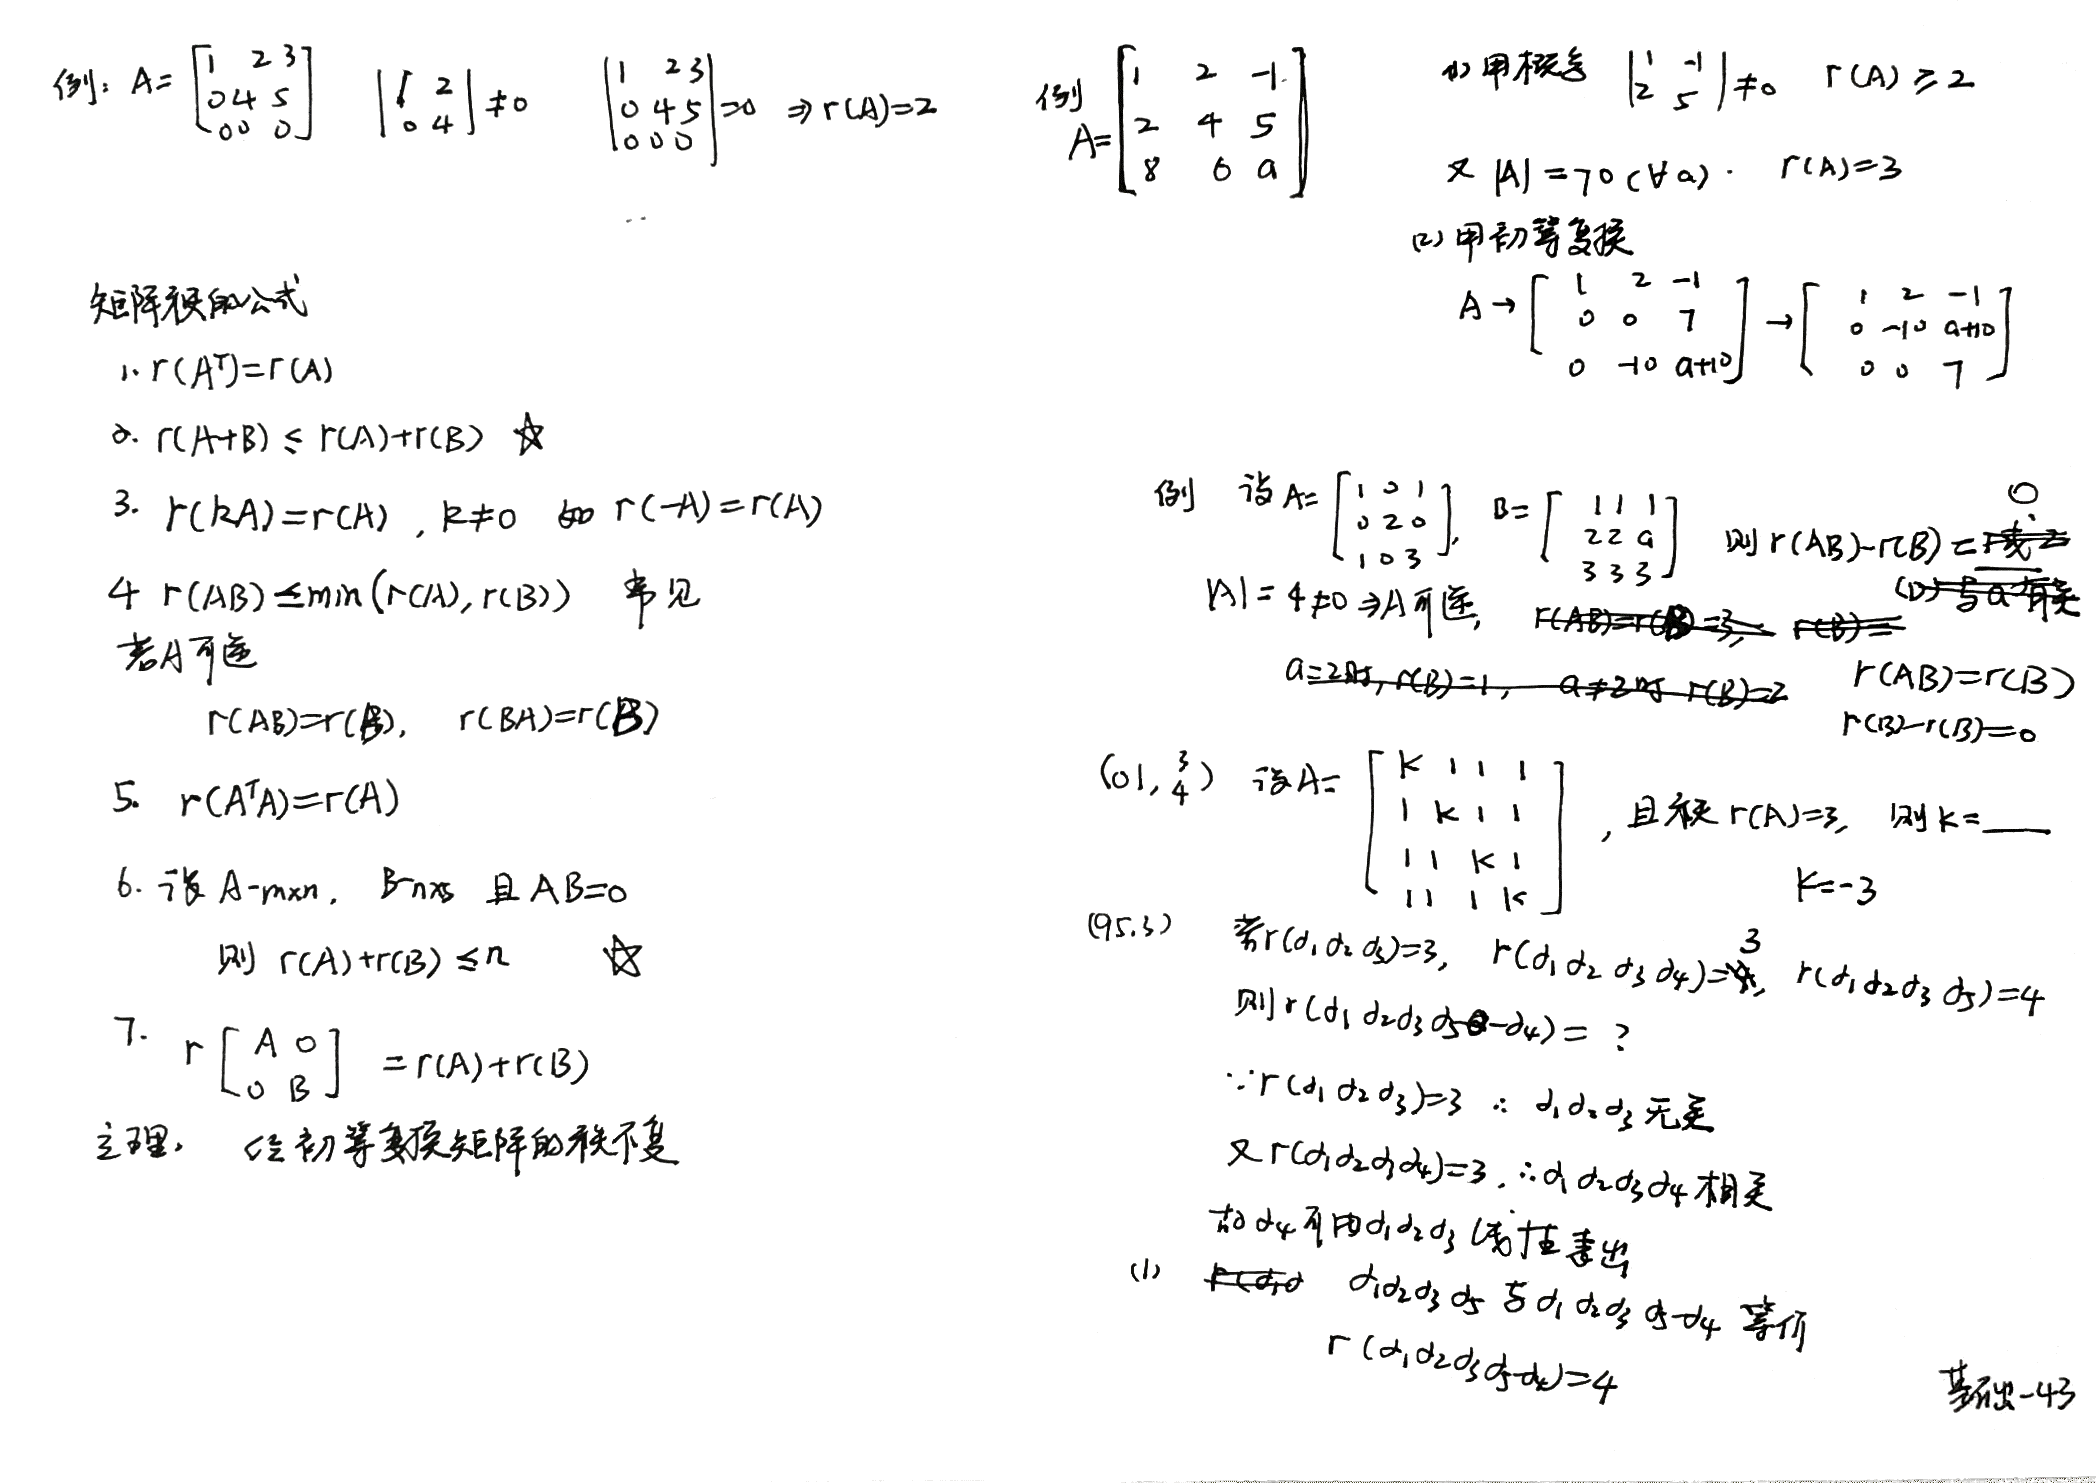 例: A= [1 2 3; 0 4 5; 0 0 0] |1 2; 0 4| ≠0 |1 2 3; 0 4 5; 0 0 0| =0 ⇒ r(A)=2
矩阵秩的公式
1. r(Aᵀ)=r(A)
2. r(A+B) ≤ r(A)+r(B) ☆
3. r(kA)=r(A), k≠0 如 r(-A)=r(A)
4 r(AB) ≤min(r(A), r(B)) 常见
若A可逆
r(AB)=r(B), r(BA)=r(B)
5. r(AᵀA)=r(A)
6. 设 A-m×n, B-n×s 且 AB=0
则 r(A)+r(B) ≤n ☆
7. r [A 0; 0 B] =r(A)+r(B)
定理. 经初等变换矩阵的秩不变
例 A= [1 2 -1; 2 4 5; 8 6 a]
(1) 用概念 |1 -1; 2 5| ≠0 r(A) ≥ 2
又 |A| =70 (∀a). r(A)=3
(2) 用初等变换
A → [1 2 -1; 0 0 7; 0 -10 a+10] → [1 2 -1; 0 -10 a+10; 0 0 7]
例 设 A= [1 0 1; 0 2 0; 1 0 3], B= [1 1 1; 2 2 a; 3 3 3] 则 r(AB)-r(B) = 0
(D) 与a有关
|A| = 4≠0 ⇒A可逆, r(AB)=r(B)=3, r(B)=
a=2时, r(B)=1, a≠2时 r(B)=2 r(AB)=r(B)
r(B)-r(B)=0
(01, 3 4) 设A= [k 1 1 1; 1 k 1 1; 1 1 k 1; 1 1 1 k], 且秩 r(A)=3, 则k=___
k=-3
(95.3) 若r(α₁ α₂ α₃)=3, r(α₁ α₂ α₃ α₄)=3, r(α₁ α₂ α₃ α₅)=4
则 r(α₁ α₂ α₃ α₅-α₄) = ?
∵ r(α₁ α₂ α₃)=3 ∴ α₁ α₂ α₃ 无关
又 r(α₁ α₂ α₃ α₄)=3, ∴ α₁ α₂ α₃ α₄ 相关
故 α₄ 可由 α₁ α₂ α₃ 线性表出
(1) α₁ α₂ α₃ α₅ 与 α₁ α₂ α₃ α₅-α₄ 等价
r(α₁ α₂ α₃ α₅-α₄)=4
基础-43